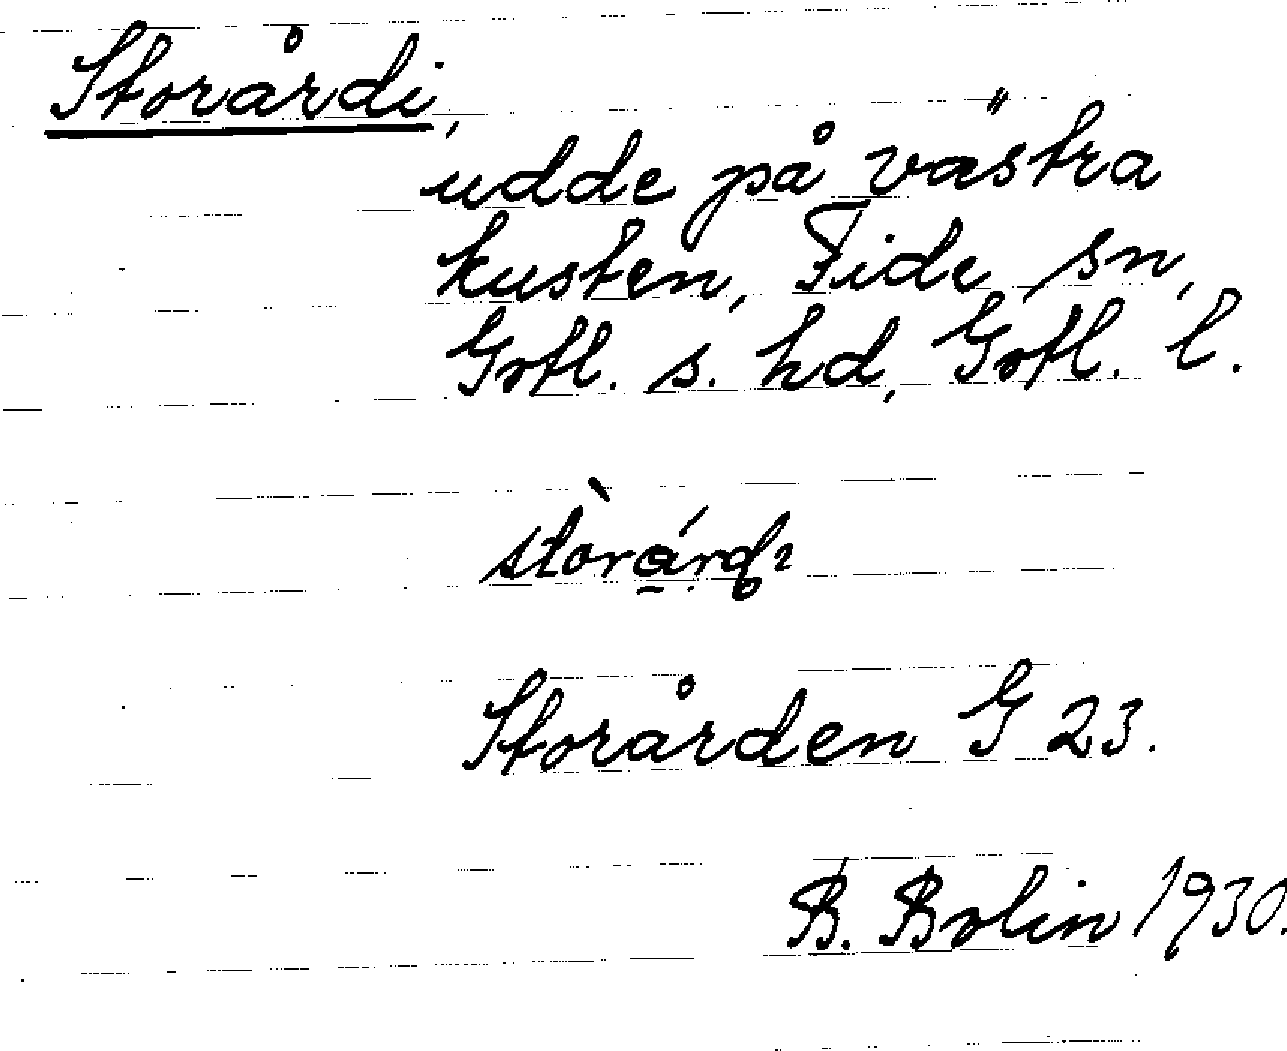 Storårdi,
udde på västra
kusten, Fide sn,
Gotl. s. hd, Gotl. l.
Storården G 23.
B. Bolin 1930.